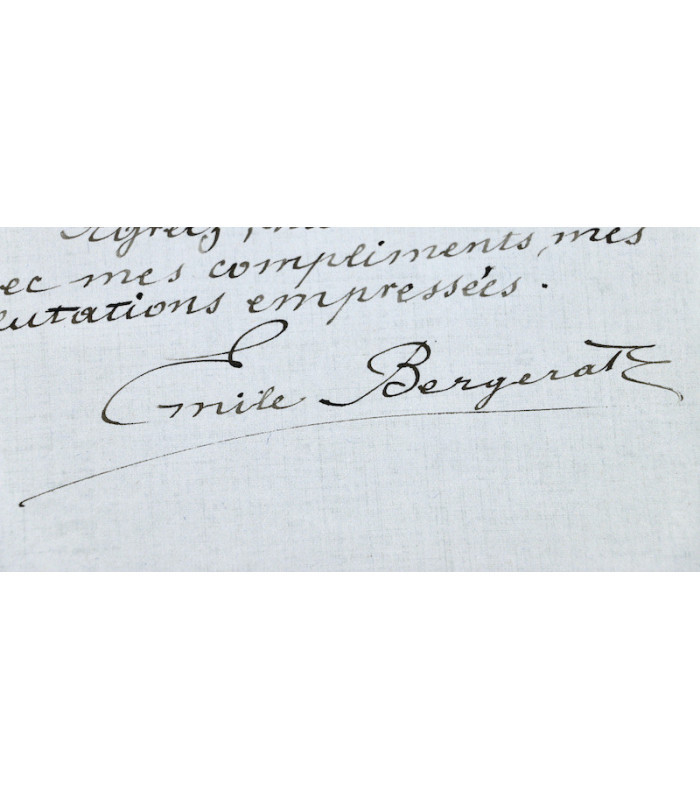 Agréez,
ec mes compliments, mes
lutations empressées.
Emile Bergerat